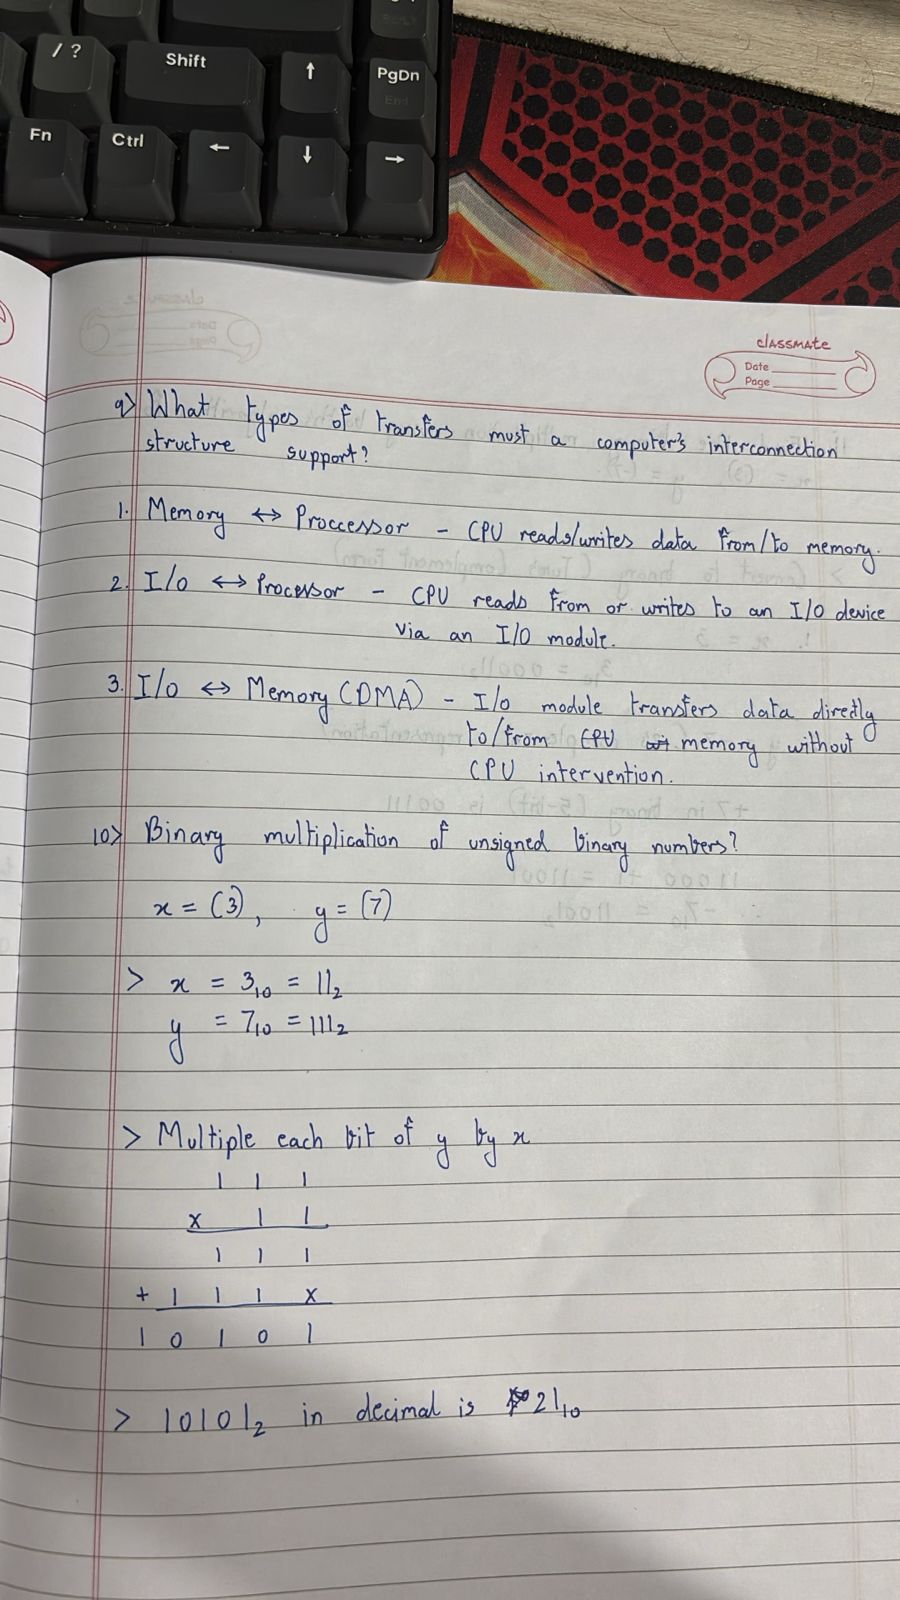 / ?
Shift
↑
PgDn
End
Fn
Ctrl
←
↓
→
classmate
Date
Page
9> What types of transfers must a computer's interconnection
structure support?
1. Memory ↔ Proccessor - CPU reads/writes data from/to memory.
2. I/o ↔ Processor - CPU reads from or writes to an I/O device
via an I/O module.
3. I/o ↔ Memory (DMA) - I/o module transfers data directly
to/from CPU memory without
CPU intervention.
10> Binary multiplication of unsigned binary numbers?
x = (3), y = (7)
> x = 3₁₀ = 11₂
y = 7₁₀ = 111₂
> Multiple each bit of y by x
1 1 1
x 1 1
1 1 1
+ 1 1 1 x
1 0 1 0 1
> 10101₂ in decimal is 21₁₀